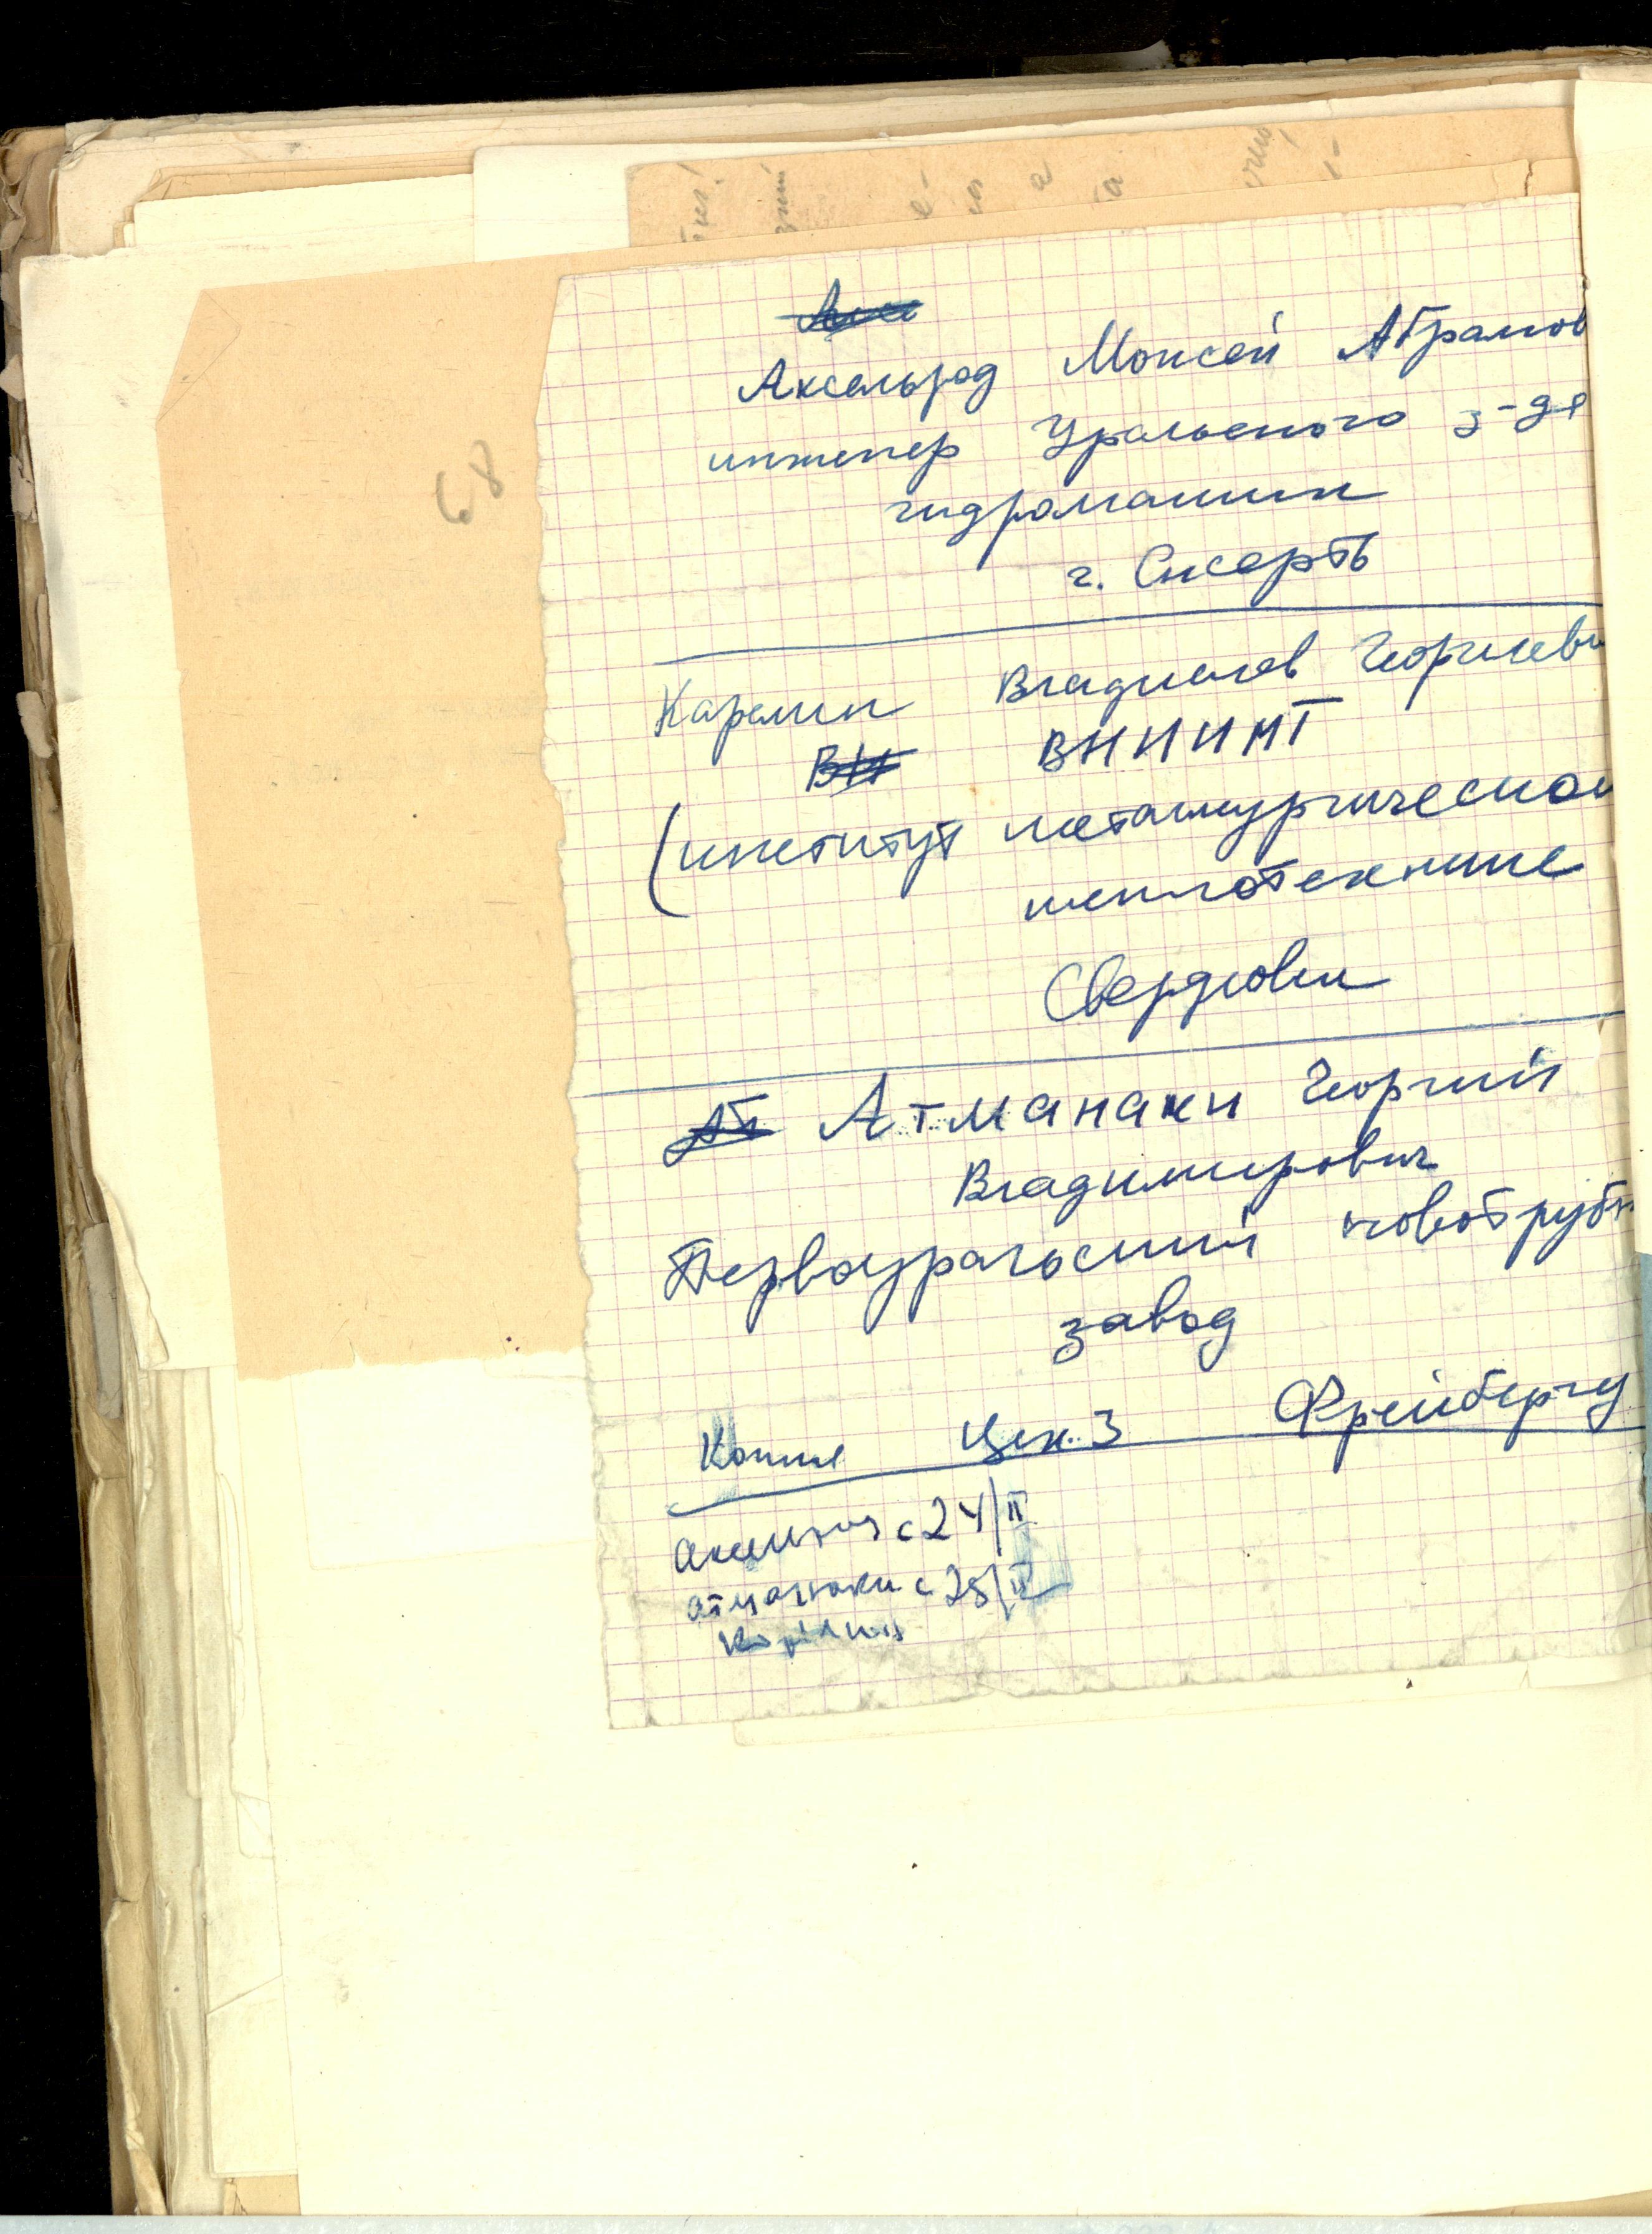 Аксельрод Моисей Абрамов
инженер Уральского з-да
гидромашин
г. Сысерть
Карелин Владислав Георгиеви
ВНИИМТ
(институт металлургической
теплотехнике
Свердловск
Атманаки Георгий
Владимирович
Первоуральский новотрубн
завод
Копия Цех 3 Фрейбергу
с 24/II
атманаки с 25/II
Карелин
68